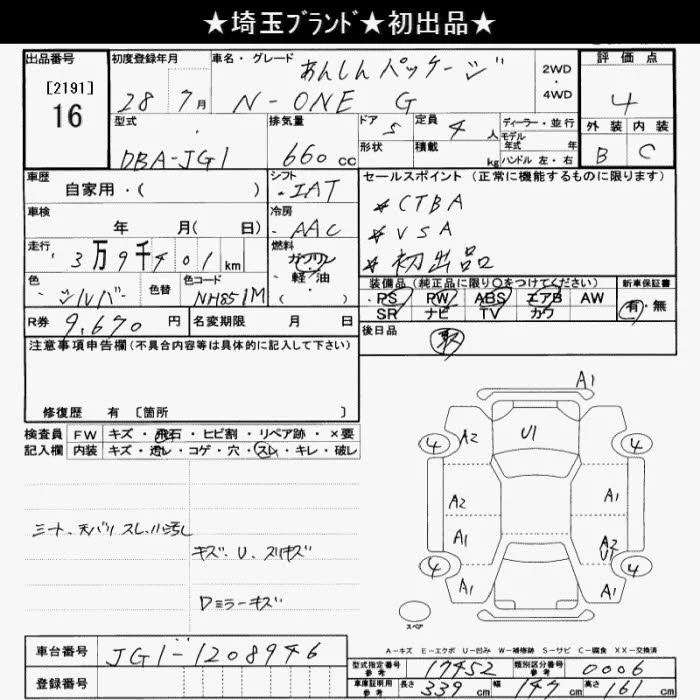 ★埼玉ブランド★初出品★
出品番号 初度登録年月 車名・グレード あんしんパッケージ 2WD・4WD 評価点
[2191] 16 28 7月 N-ONE G 4
型式 排気量 ドア 5 定員 4人 ディーラー・並行 外装 内装
DBA-JG1 660cc 形状 積載 kg モデル年式 年 ハンドル 左・右 B C
車歴 自家用・( ) シフト IAT セールスポイント (正常に機能するものに限ります)
車検 年 月( 日) 冷房 AAC ★CTBA
★VSA
走行 3万9千401km 燃料 ガソリン・軽油・( ) ★初出品
色 シルバー 色替 色コード NH851M 装備品 (純正品に限り○をつけてください) 新車保証書
PS PW ABS エアB AW 有・無
SR ナビ TV カワ
R券 9,670円 名変期限 月 日 後日品 取
注意事項申告欄(不具合内容等は具体的に記入して下さい)
修復歴 有 [箇所 ]
検査員記入欄 FW キズ・飛石・ヒビ割・リペア跡・×要
内装 キズ・汚レ・コゲ・穴・スレ・キレ・破レ
A1
4 A2 U1 4
A2 A1
A1 A2
U1
4 A1 A1 4
シート、天バリ スレ、小汚レ
キズ、U、スリキズ
Dミラーキズ
スペア
A-キズ E-エクボ U-凹み W-補修跡 S-サビ C-腐食 XX-交換済
車台番号 JG1-1208946 型式指定番号 参考 17452 類別区分番号 参考 0006
登録番号 車庫証明用 参考 長さ 339cm 幅 147cm 高さ 161cm